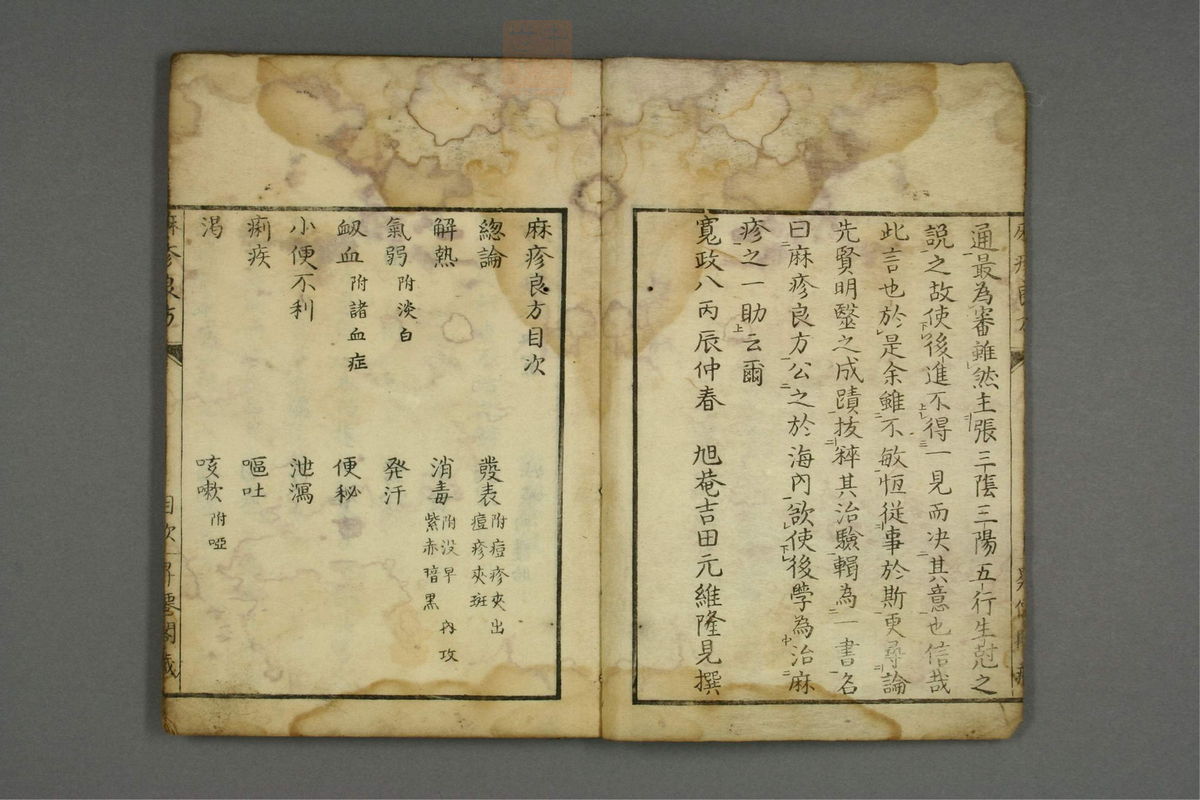 通最為審雖然主張三陰三陽五行生尅之
説之故使後進不得一見而决其意也信哉
此言也於是余雖不敏恆従事於斯更尋論
先賢明毉之成蹟抜粹其治驗輯為一書名
曰麻疹良方公之於海內欲使後學為治麻
疹之一助云爾
寛政八丙辰仲春　旭菴吉田元維隆見撰
麻疹良方目次
總論　發表 附痘疹夾出 痘疹夾斑
解熱　消毒 附没早 內攻 紫赤瘖黒
氣弱 附淡白　発汗
衂血 附諸血症　便秘
小便不利　泄瀉
痢疾　嘔吐
渇　咳嗽 附啞
麻疹良方　目次